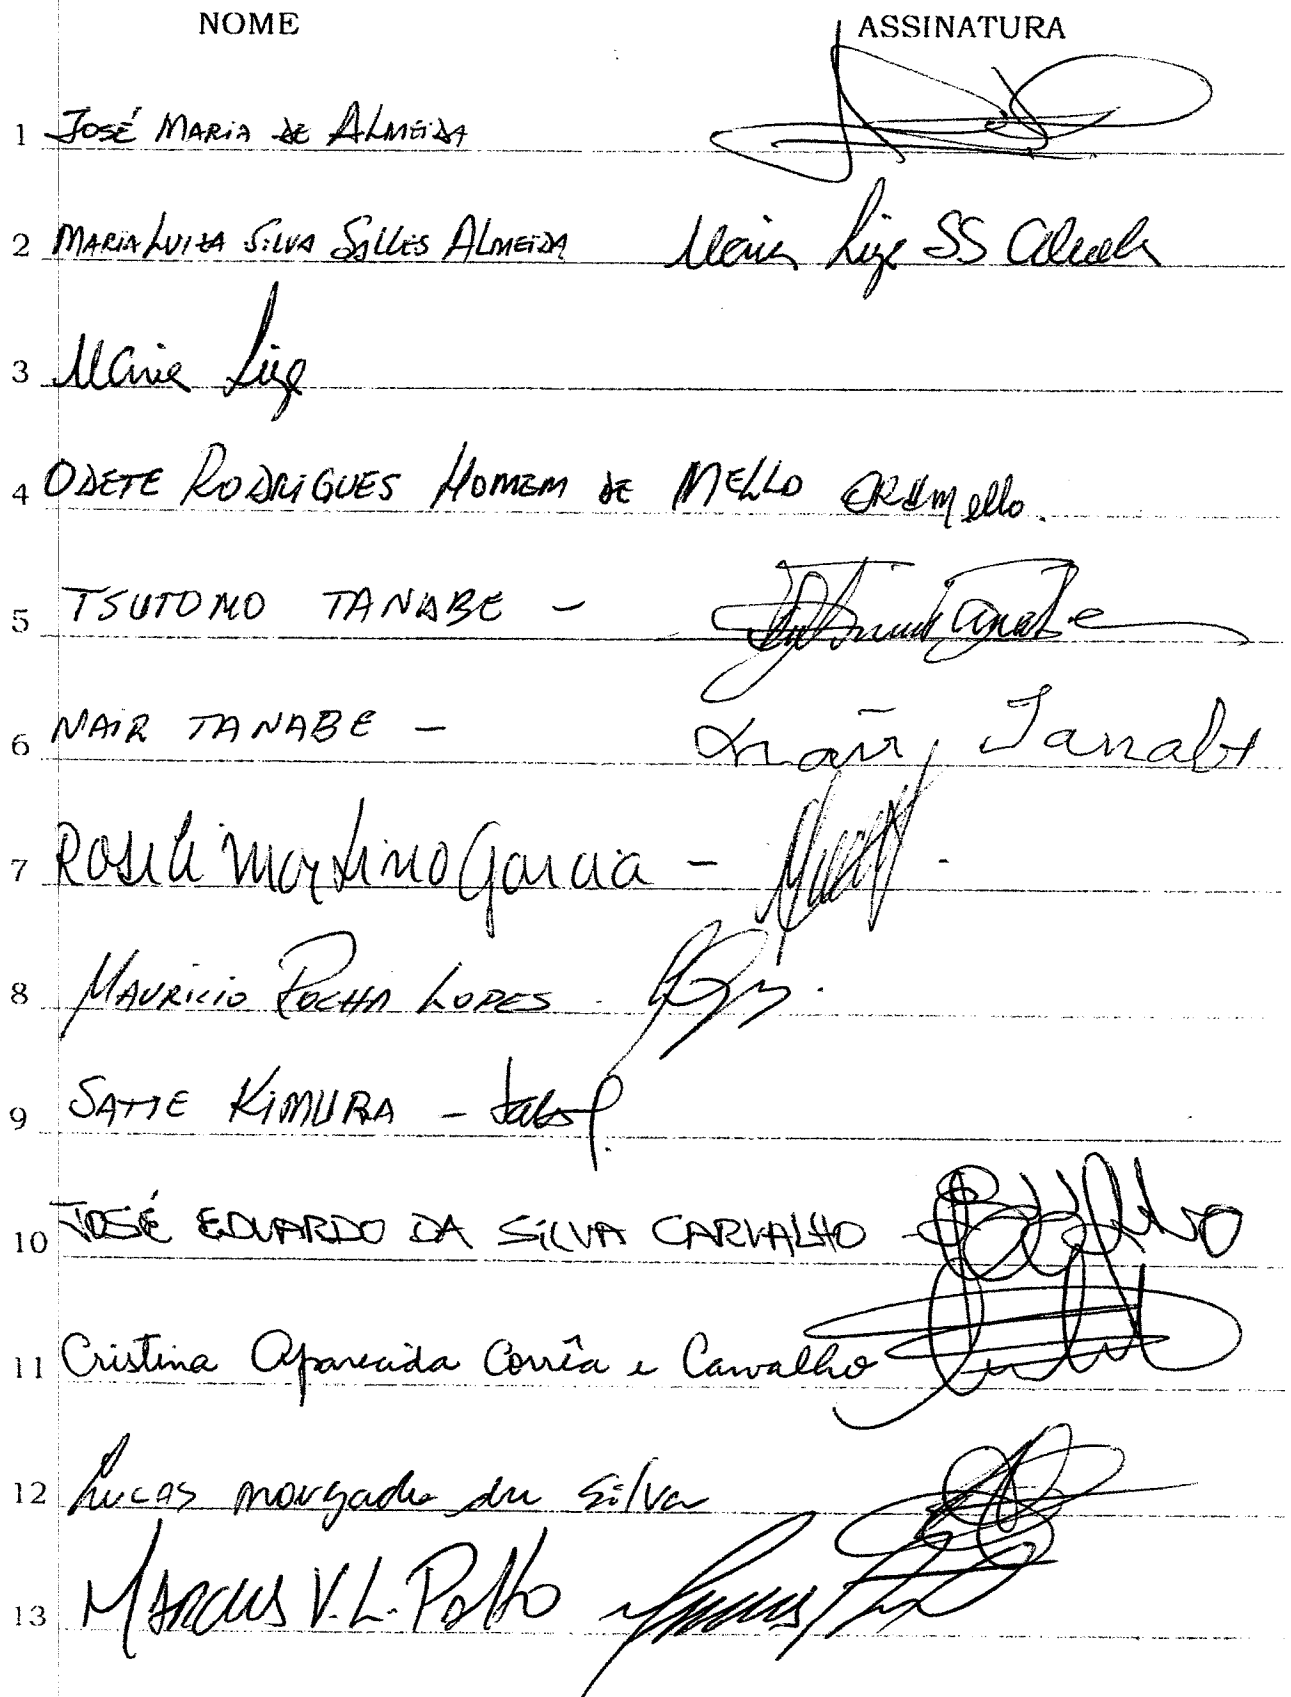 NOME ASSINATURA
1 JOSÉ MARIA DE ALMEIDA
2 MARIA LUIZA SILVA SALLES ALMEIDA Maria Luiza SS Almeida
3 Maria Luiza
4 ODETE RODRIGUES HOMEM DE MELLO ORHMello.
5 TSUTOMO TANABE - Tanabe
6 NAIR TANABE - Nair Tanabe
7 Roseli Martino Garcia -
8 MAURICIO ROCHA LOPES.
9 SATIE KIMURA -
10 JOSÉ EDUARDO DA SILVA CARVALHO -
11 Cristina Aparecida Corrêa e Carvalho
12 Lucas morgado da Silva
13 MARCUS V. L. Patto